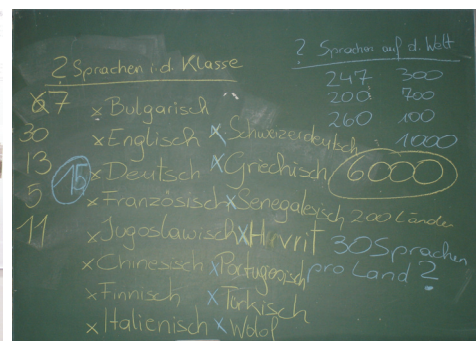 ? Sprachen i.d. Klasse
7
30
13
5
11
15
x Bulgarisch
x Englisch
x Deutsch
x Französisch
x Jugoslawisch
x Chinesisch
x Finnisch
x Italienisch
x Schweizerdeutsch
x Griechisch
x Senegalesisch
x Hivrit
x Portugiesisch
x Türkisch
x Wolof
? Sprachen auf d. Welt
247 300
200 700
260 100
1000
6000
200 Länder
30 Sprachen
pro Land?